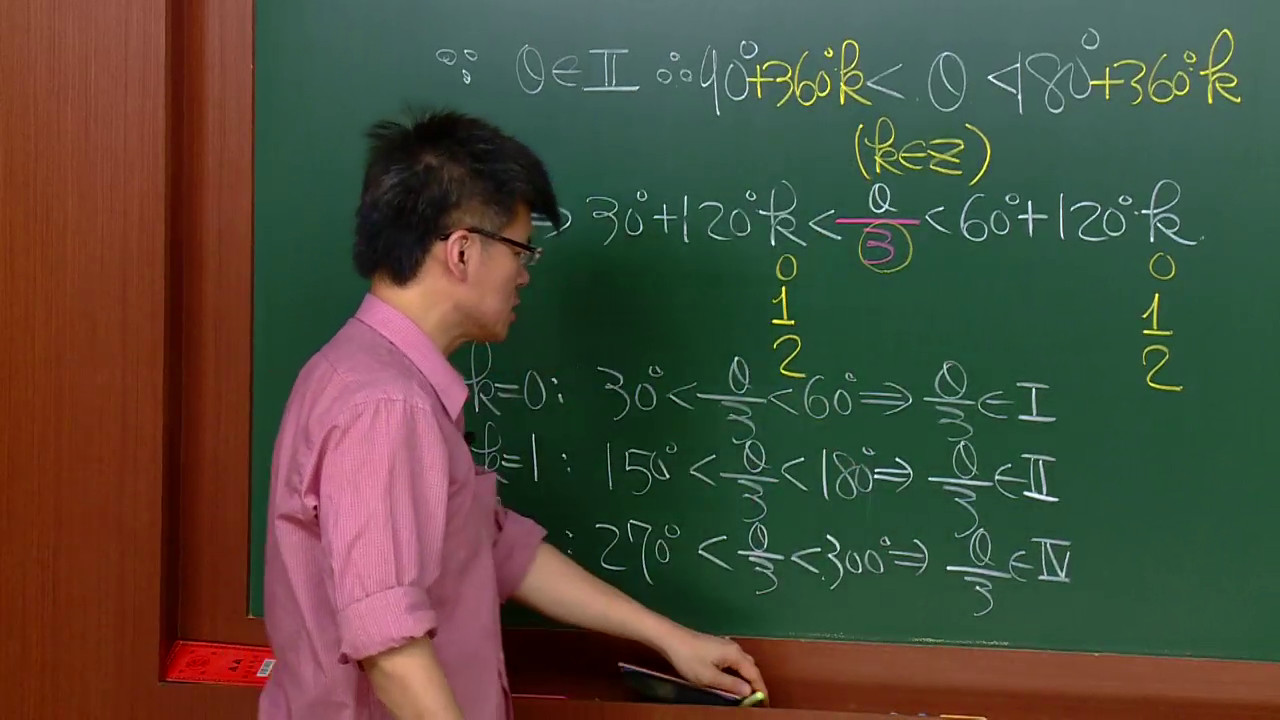 ∵ θ∈Ⅱ ∴ 90°+360°k < θ < 180°+360°k
(k∈Z)
⇒ 30°+120°k < θ/3 < 60°+120°k
0 0
1 1
2 2
k=0: 30° < θ/3 < 60° ⇒ θ/3 ∈ Ⅰ
k=1: 150° < θ/3 < 180° ⇒ θ/3 ∈ Ⅱ
: 270° < θ/3 < 300° ⇒ θ/3 ∈ Ⅳ